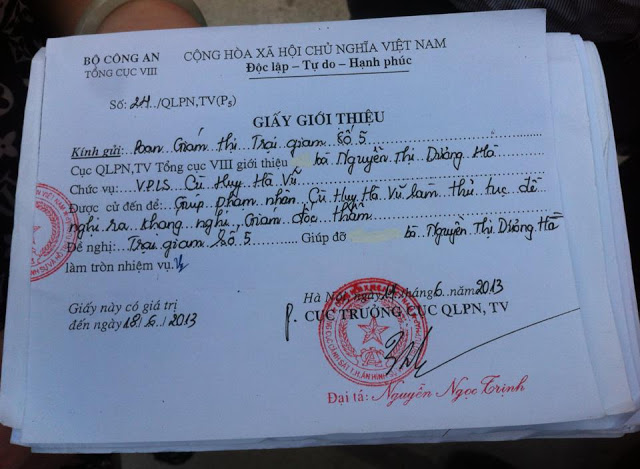 BỘ CÔNG AN
TỔNG CỤC VIII
CỘNG HÒA XÃ HỘI CHỦ NGHĨA VIỆT NAM
Độc lập – Tự do – Hạnh phúc
Số: 24../QLPN,TV(P5)
GIẤY GIỚI THIỆU
Kính gửi: Ban Giám thị Trại giam số 5
Cục QLPN,TV Tổng cục VIII giới thiệu bà Nguyễn Thị Dương Hà
Chức vụ: VPLS Cù Huy Hà Vũ
Được cử đến để: Giúp phạm nhân Cù Huy Hà Vũ làm thủ tục đề
nghị ra kháng nghị, Giám đốc thẩm
Đề nghị: Trại giam số 5 Giúp đỡ bà Nguyễn Thị Dương Hà
làm tròn nhiệm vụ.
Giấy này có giá trị
đến ngày 18/6../2013
Hà Nội, ngày 11 tháng 6 năm 2013
CỤC TRƯỞNG CỤC QLPN, TV
Đại tá: Nguyễn Ngọc Trịnh